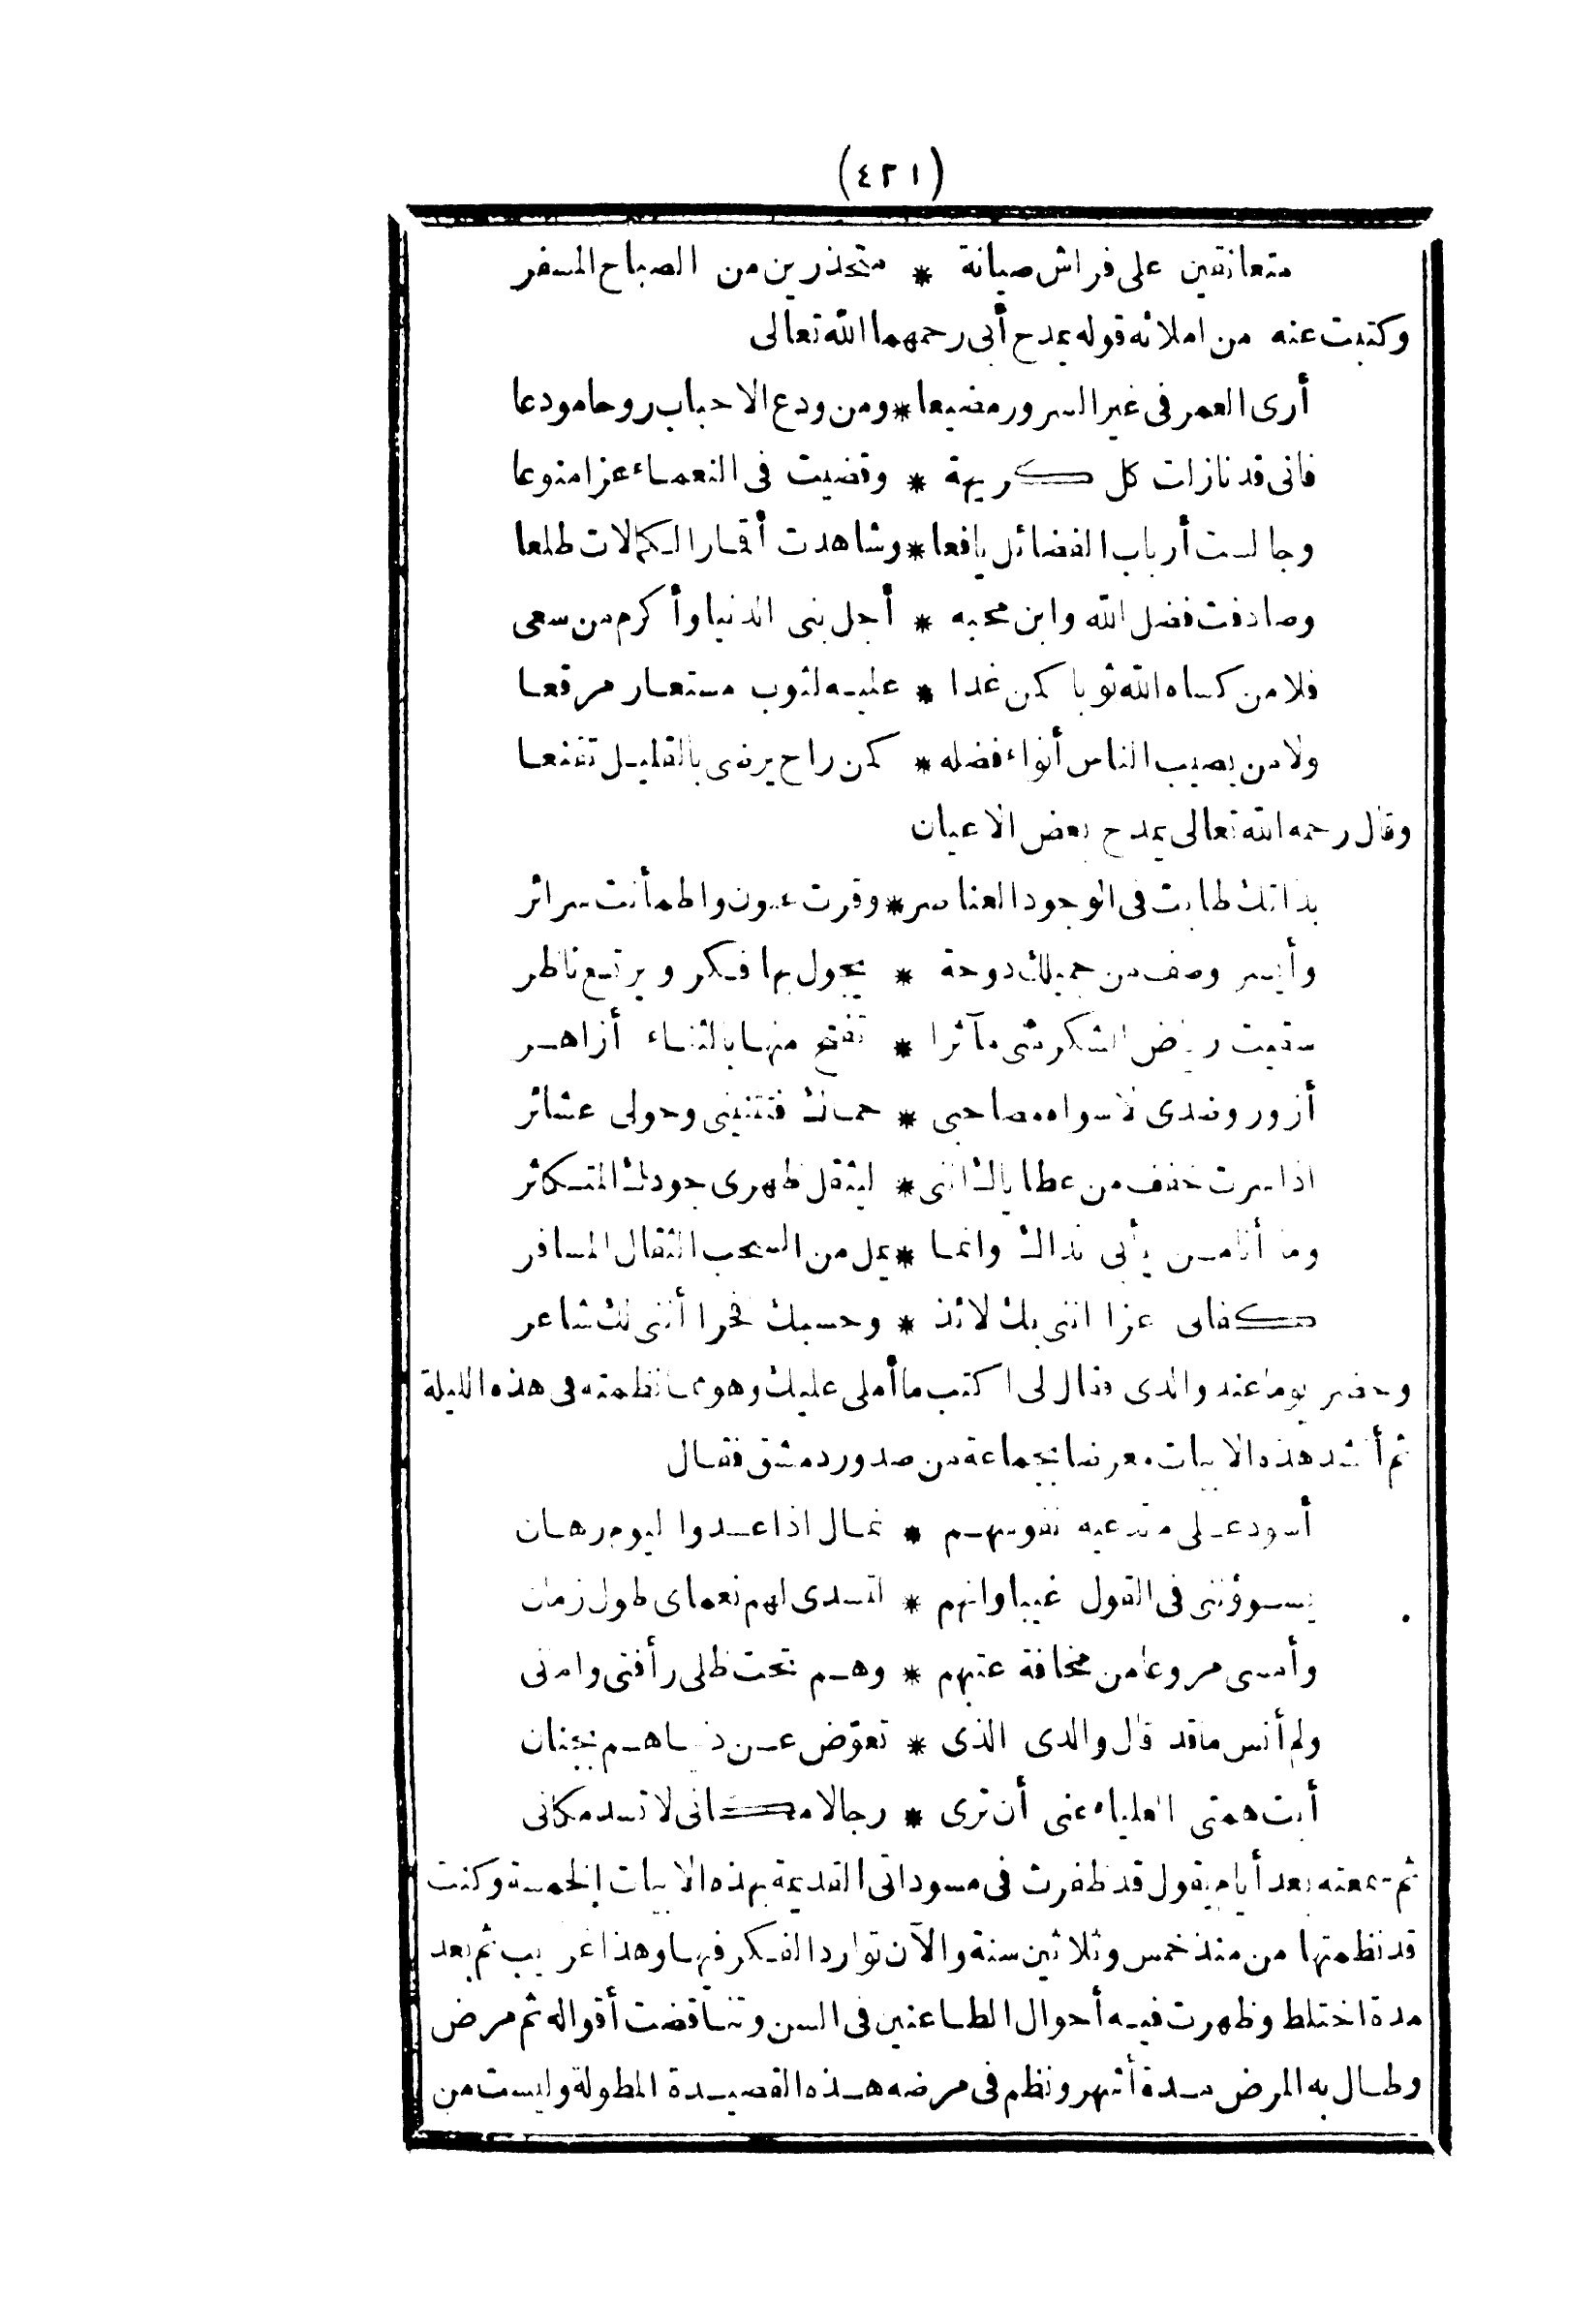 (٤٢١)
متعانقين على فراش صيانة * متحذرين من الصباح المسفر
وكتبت عنه من املائه قوله يمدح أبى رحمهما الله تعالى
أرى العمر فى غير السرور مضيعا * ومن ودع الاحباب روحا مودعا
فانى قد نازلت كل كريهة * وقضيت فى النعماء عزا منوعا
وجالست أرباب الفضائل يافعا * وشاهدت أقمار الكمالات طلعا
وصادفت فضل الله وابن محبه * أجل بنى الدنيا وأكرم من سعى
فلا من كساه الله ثوبا كمن غدا * عليه لثوب مستعار مرقعا
ولا من يصيب الناس أنواء فضله * كمن راح يرضى بالقليل تقنعا
وقال رحمه الله تعالى يمدح بعض الاعيان
بذاتك طابت فى الوجود العناصر * وقرت عيون واطمأنت سرائر
وأيسر وصف من جميلك دوحة * يجول بها فكر ويرتع ناظر
سقيت رياض الشكر منى مآثرا * تفتح منها بالثناء أزاهر
أزور وضدى لا سواه مصاحبى * حماك فتثنينى وحولى عشائر
اذا سرت خفف من عطاياك اننى * ليثقل ظهرى جودك المتكاثر
وما أنا من يأبى نداك وانما * يمل من السحب الثقال المسافر
كفانى عزا اننى بك لائذ * وحسبك فخرا أننى لك شاعر
وحضر يوما عند والدى فقال لى اكتب ما أملى عليك وهو مما نظمته فى هذه الليلة
ثم أنشد هذه الابيات معرضا بجماعة من صدور دمشق فقال
أسود على ما تدعيه نفوسهم * نمال اذا عدوا ليوم رهان
يسوؤننى فى القول غيبا وانهم * لتسدى لهم نعماى طول زمان
وأمسى مروعا من مخافة عتبهم * وهم تحت ظلى رأفتى وامانى
ولم أنس ما قد قال والدى الذى * تعوّض عن دنياهم بجنان
أبت همتى العلياء عنى أن ترى * رجالا مكانى لا تسد مكانى
ثم سمعته بعد أيام يقول قد ظفرت فى مسوداتى القديمة بهذه الابيات الخمسة وكنت
قد نظمتها من منذ خمس وثلاثين سنة والآن توارد الفكر فيها وهذا غريب ثم بعد
مدة اختلط وظهرت فيه أحوال الطاعنين فى السن وتناقضت أقواله ثم مرض
وطال به المرض مدة أشهر ونظم فى مرضه هذه القصيدة المطولة وليست من